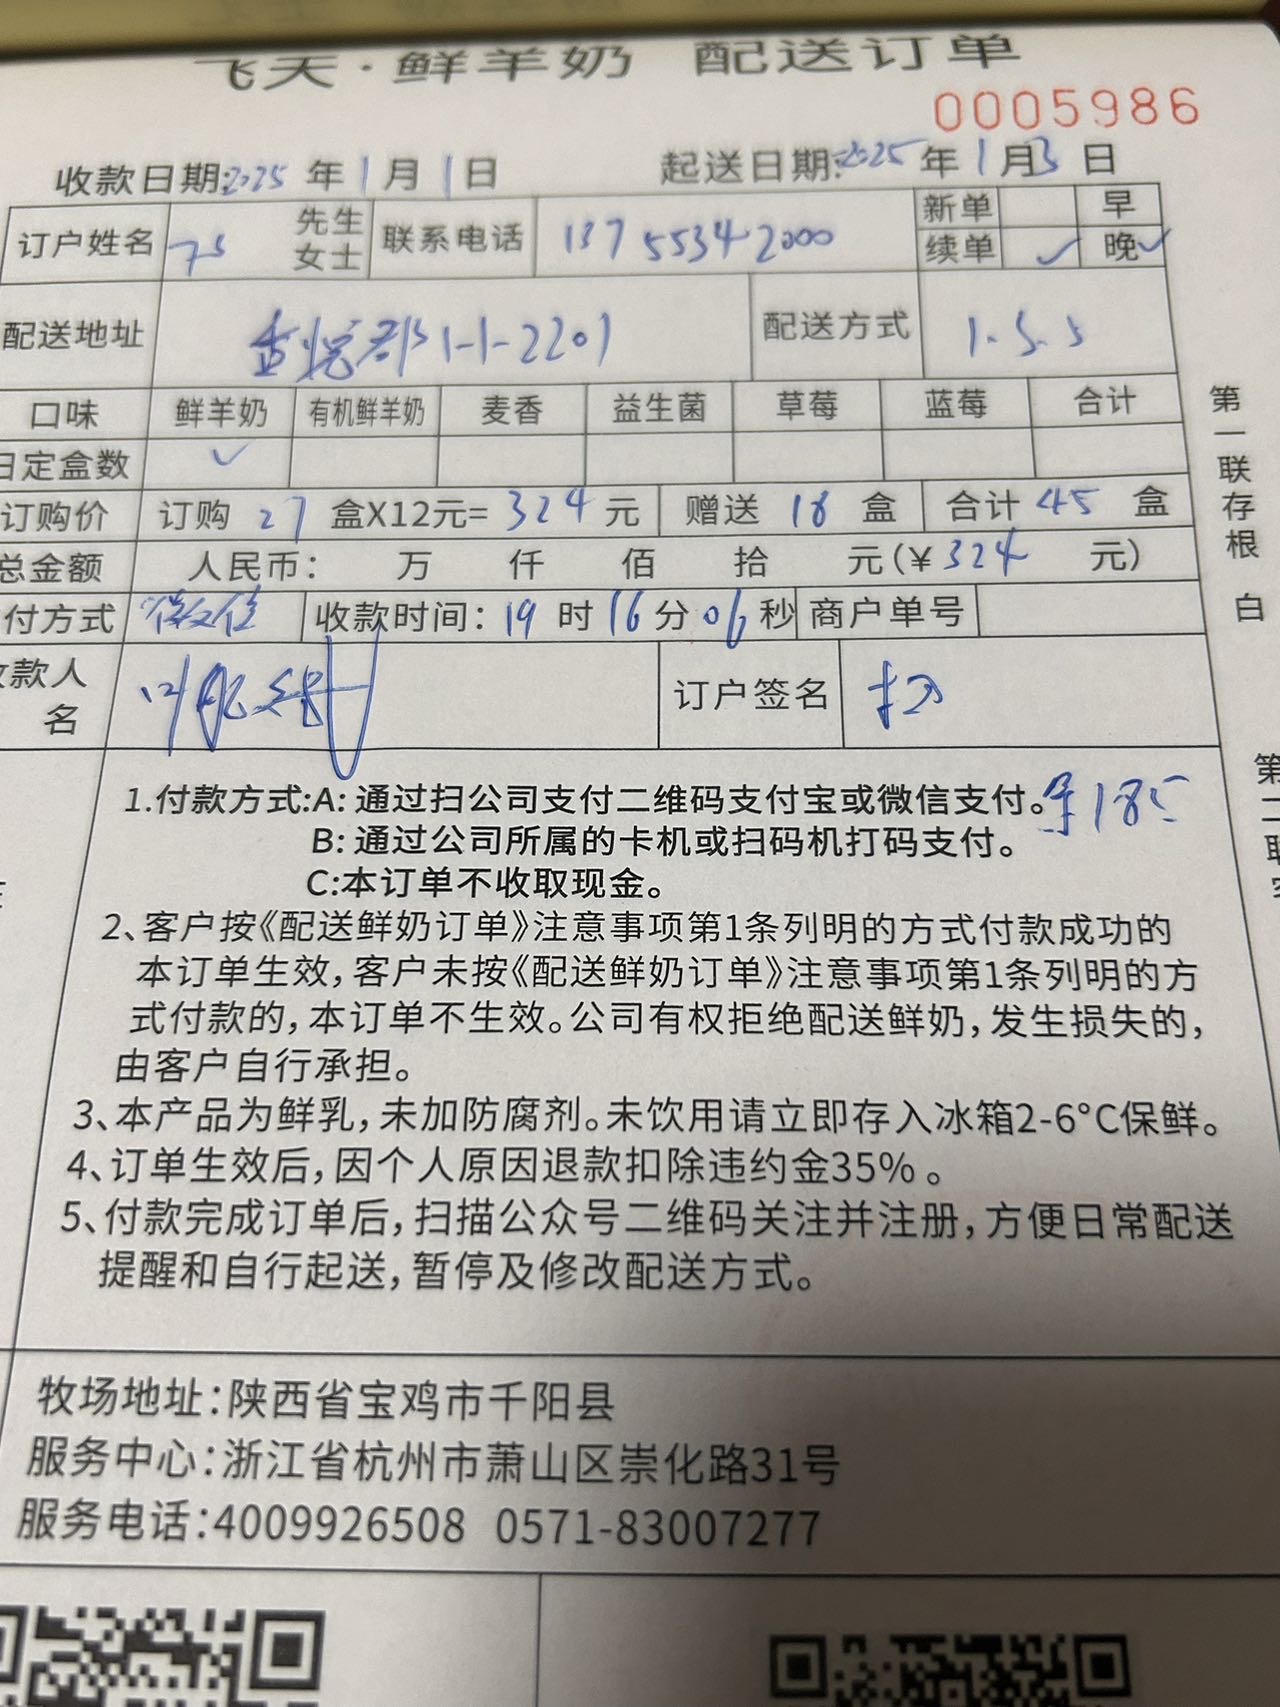 飞天·鲜羊奶 配送订单
0005986
收款日期:2025年1月1日 起送日期:2025年1月3日
订户姓名 先生 女士 联系电话 13755342000 新单 早
续单 ✓ 晚 ✓
配送地址 1-1-2201 配送方式 1.5.5
口味 鲜羊奶 有机鲜羊奶 麦香 益生菌 草莓 蓝莓 合计
日定盒数 ✓
订购价 订购 27 盒X12元= 324 元 赠送 18 盒 合计 45 盒
总金额 人民币: 万 仟 佰 拾 元(¥324 元)
付方式 微信 收款时间: 19 时 16 分 06 秒 商户单号
款人
名 订户签名
1.付款方式:A: 通过扫公司支付二维码支付宝或微信支付。
B: 通过公司所属的卡机或扫码机打码支付。
C:本订单不收取现金。
2、客户按《配送鲜奶订单》注意事项第1条列明的方式付款成功的
本订单生效,客户未按《配送鲜奶订单》注意事项第1条列明的方
式付款的,本订单不生效。公司有权拒绝配送鲜奶,发生损失的,
由客户自行承担。
3、本产品为鲜乳,未加防腐剂。未饮用请立即存入冰箱2-6°C保鲜。
4、订单生效后,因个人原因退款扣除违约金35%。
5、付款完成订单后,扫描公众号二维码关注并注册,方便日常配送
提醒和自行起送,暂停及修改配送方式。
牧场地址:陕西省宝鸡市千阳县
服务中心:浙江省杭州市萧山区崇化路31号
服务电话:4009926508 0571-83007277
第一联存根 白
第二联